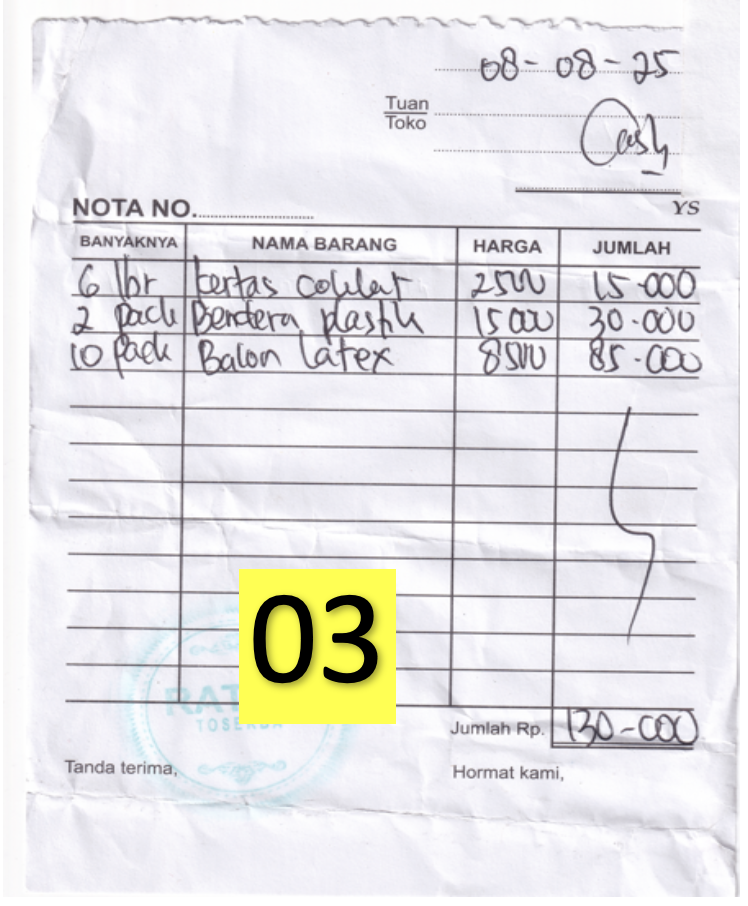 08-08-25
Tuan
Toko
Cash
NOTA NO.
YS
BANYAKNYA NAMA BARANG HARGA JUMLAH
6 lbr kertas coklat 2500 15.000
2 pack Bendera plastik 15000 30.000
10 pack Balon latex 8500 85.000
03
TOSERBA
Jumlah Rp. 130-000
Tanda terima, Hormat kami,